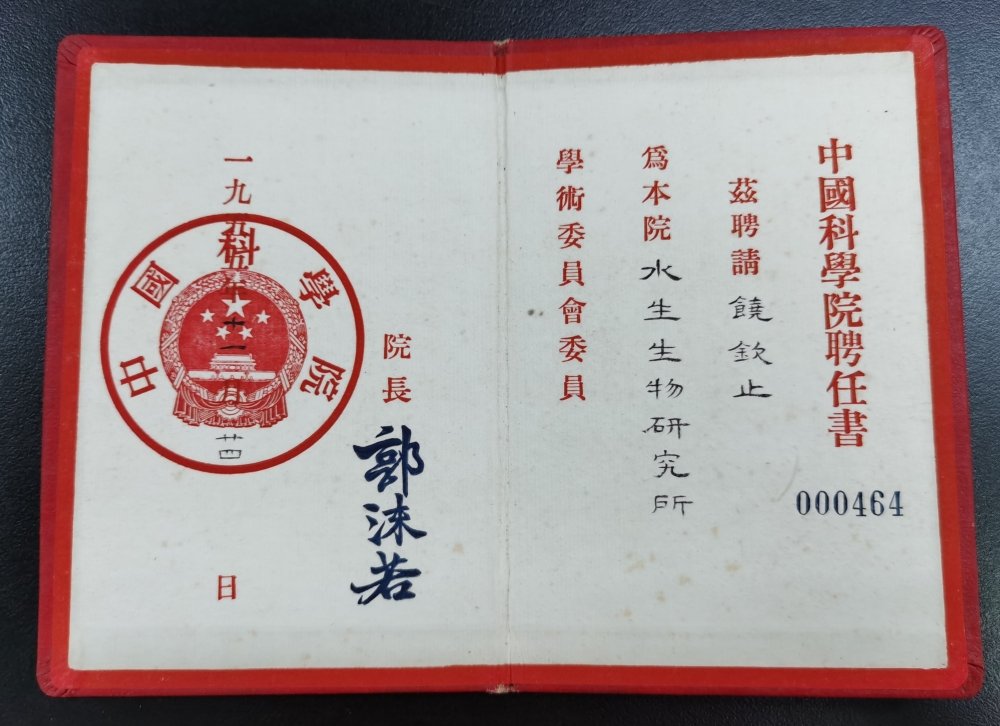 中國科學院聘任書
000464
茲聘請饒欽止
爲本院水生生物研究所
學術委員會委員
院長 郭沫若
一九五年十一月廿四日
中國科學院